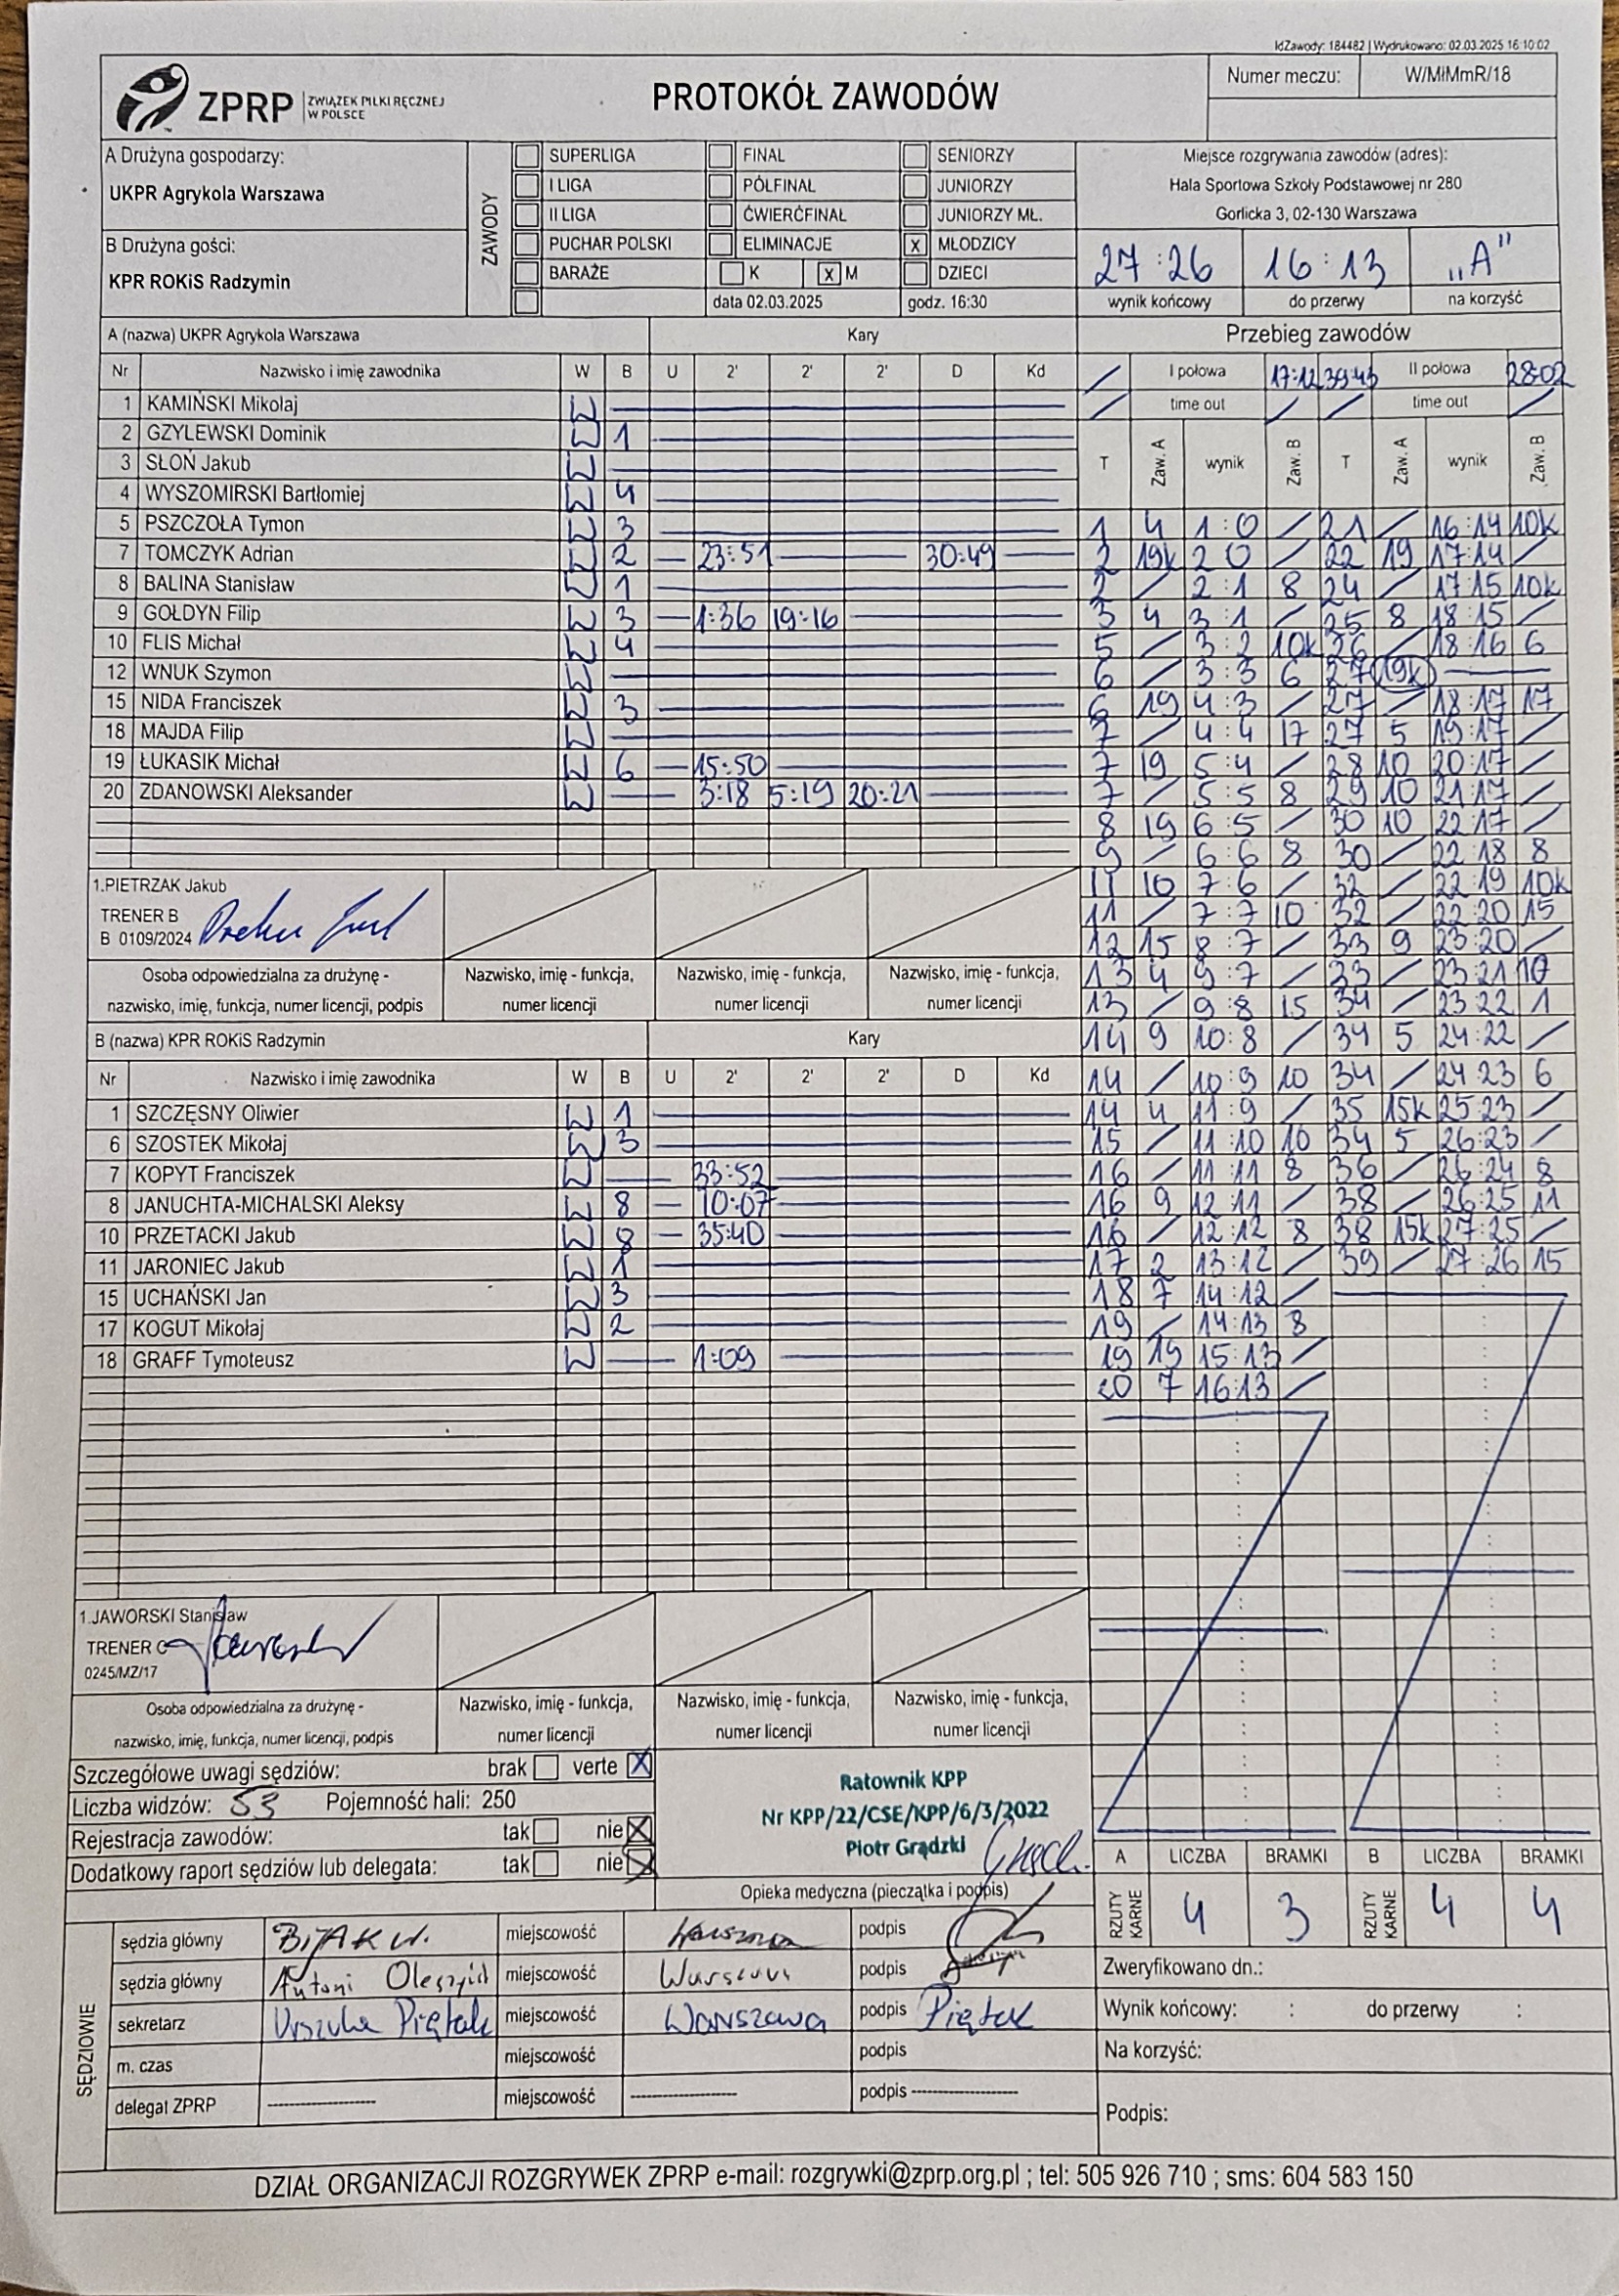 IdZawody: 184482 | Wydrukowano: 02.03.2025 16:10:02
ZPRP ZWIĄZEK PIŁKI RĘCZNEJ W POLSCE
PROTOKÓŁ ZAWODÓW
Numer meczu: W/MłMmR/18
A Drużyna gospodarzy:
UKPR Agrykola Warszawa
B Drużyna gości:
KPR ROKiS Radzymin
ZAWODY
SUPERLIGA FINAŁ SENIORZY
I LIGA PÓŁFINAŁ JUNIORZY
II LIGA ĆWIERĆFINAŁ JUNIORZY MŁ.
PUCHAR POLSKI ELIMINACJE X MŁODZICY
BARAŻE K X M DZIECI
data 02.03.2025 godz. 16:30
Miejsce rozgrywania zawodów (adres):
Hala Sportowa Szkoły Podstawowej nr 280
Gorlicka 3, 02-130 Warszawa
27:26 16:13 „A"
wynik końcowy do przerwy na korzyść
A (nazwa) UKPR Agrykola Warszawa Kary
Nr Nazwisko i imię zawodnika W B U 2' 2' 2' D Kd
1 KAMIŃSKI Mikołaj W
2 GZYLEWSKI Dominik W 1
3 SŁOŃ Jakub W
4 WYSZOMIRSKI Bartłomiej W 4
5 PSZCZOŁA Tymon W 3
7 TOMCZYK Adrian W 2 23:51 30:49
8 BALINA Stanisław W 1
9 GOŁDYN Filip W 3 1:36 19:16
10 FLIS Michał W 4
12 WNUK Szymon W
15 NIDA Franciszek W 3
18 MAJDA Filip W
19 ŁUKASIK Michał W 6 15:50
20 ZDANOWSKI Aleksander W 3:18 5:19 20:21
1.PIETRZAK Jakub
TRENER B
B 0109/2024
Osoba odpowiedzialna za drużynę -
nazwisko, imię, funkcja, numer licencji, podpis
Nazwisko, imię - funkcja,
numer licencji
Nazwisko, imię - funkcja,
numer licencji
Nazwisko, imię - funkcja,
numer licencji
B (nazwa) KPR ROKiS Radzymin Kary
Nr Nazwisko i imię zawodnika W B U 2' 2' 2' D Kd
1 SZCZĘSNY Oliwier W 1
6 SZOSTEK Mikołaj W 3
7 KOPYT Franciszek W 33:52
8 JANUCHTA-MICHALSKI Aleksy W 8 10:07
10 PRZETACKI Jakub W 8 35:40
11 JARONIEC Jakub W 1
15 UCHAŃSKI Jan W 3
17 KOGUT Mikołaj W 2
18 GRAFF Tymoteusz W 1:09
1.JAWORSKI Stanisław
TRENER C
0245/MZ/17
Osoba odpowiedzialna za drużynę -
nazwisko, imię, funkcja, numer licencji, podpis
Nazwisko, imię - funkcja,
numer licencji
Nazwisko, imię - funkcja,
numer licencji
Nazwisko, imię - funkcja,
numer licencji
Przebieg zawodów
/ I połowa 17:12 39:43 II połowa 28:02
/ time out / / time out /
T Zaw. A wynik Zaw. B T Zaw. A wynik Zaw. B
1 4 1:0 / 21 / 16:14 10k
2 19k 2 0 / 22 19 17:14 /
2 / 2:1 8 24 / 17:15 10k
3 4 3:1 / 25 8 18:15 /
5 / 3:2 10k 26 / 18:16 6
6 / 3:3 6 27 19k
6 19 4:3 / 27 / 18:17 17
7 / 4:4 17 27 5 19:17 /
7 19 5:4 / 28 10 20:17 /
7 / 5:5 8 29 10 21:17 /
8 19 6:5 / 30 10 22:17 /
9 / 6:6 8 30 / 22:18 8
11 10 7:6 / 32 / 22:19 10k
11 / 7:7 10 32 / 22:20 15
12 15 8:7 / 33 9 23:20 /
13 4 9:7 / 33 / 23:21 10
13 / 9:8 15 34 / 23:22 1
14 9 10:8 / 34 5 24:22 /
14 / 10:9 10 34 / 24:23 6
14 4 11:9 / 35 15k 25:23 /
15 / 11:10 10 34 5 26:23 /
16 / 11:11 8 36 / 26:24 8
16 9 12:11 / 38 / 26:25 11
16 / 12:12 8 38 15k 27:25 /
17 2 13:12 / 39 / 27:26 15
18 7 14:12 /
19 / 14:13 8
19 19 15:13 /
20 7 16:13 /
Szczegółowe uwagi sędziów: brak verte X
Liczba widzów: 53 Pojemność hali: 250
Rejestracja zawodów: tak nie X
Dodatkowy raport sędziów lub delegata: tak nie X
Ratownik KPP
Nr KPP/22/CSE/KPP/6/3/2022
Piotr Grądzki
Opieka medyczna (pieczątka i podpis)
A LICZBA BRAMKI B LICZBA BRAMKI
RZUTY KARNE 4 3 RZUTY KARNE 4 4
SĘDZIOWIE
sędzia główny BIJAK W. miejscowość Warszawa podpis
sędzia główny Antoni miejscowość Warszawa podpis
sekretarz Urszula Piętak miejscowość Warszawa podpis Piętak
m. czas miejscowość podpis
delegat ZPRP ---------- miejscowość ---------- podpis ----------
Zweryfikowano dn.:
Wynik końcowy: : do przerwy :
Na korzyść:
Podpis:
DZIAŁ ORGANIZACJI ROZGRYWEK ZPRP e-mail: rozgrywki@zprp.org.pl ; tel: 505 926 710 ; sms: 604 583 150